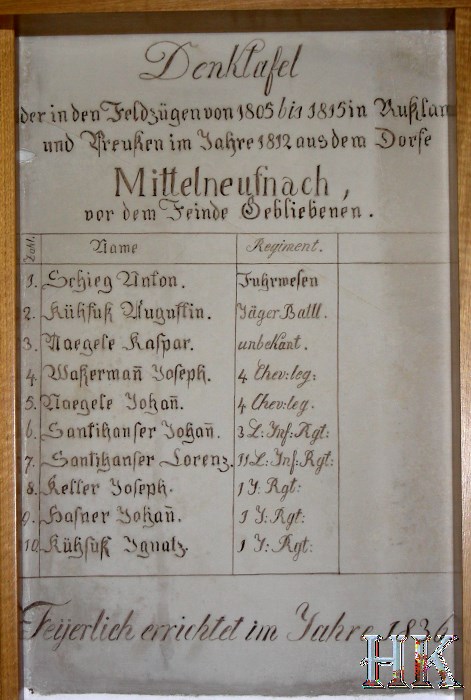 Denktafel
der in den Feldzügen von 1805 bis 1815 in Rußlan
und Preußen im Jahre 1812 aus dem Dorfe
Mittelneufnach,
vor dem Feinde Gebliebenen.
Zahl. Name Regiment.
1. Schieg Anton. Fuhrwesen
2. Kühfuß Augustin. Jäger Batll.
3. Naegele Kaspar. unbekant.
4. Waßerman̄ Joseph. 4 Chev:leg:
5. Naegele Johan̄. 4 Chev:leg.
6. Santihanser Johan̄. 3 L: Inf: Rgt:
7. Santihanser Lorenz. 11 L: Inf: Rgt:
8. Keller Joseph. 1 J: Rgt:
9. Hafner Johan̄. 1 J: Rgt:
10. Kühfuß Ignatz. 1 J: Rgt:
Feÿerlich errichtet im Jahre 1836
HK